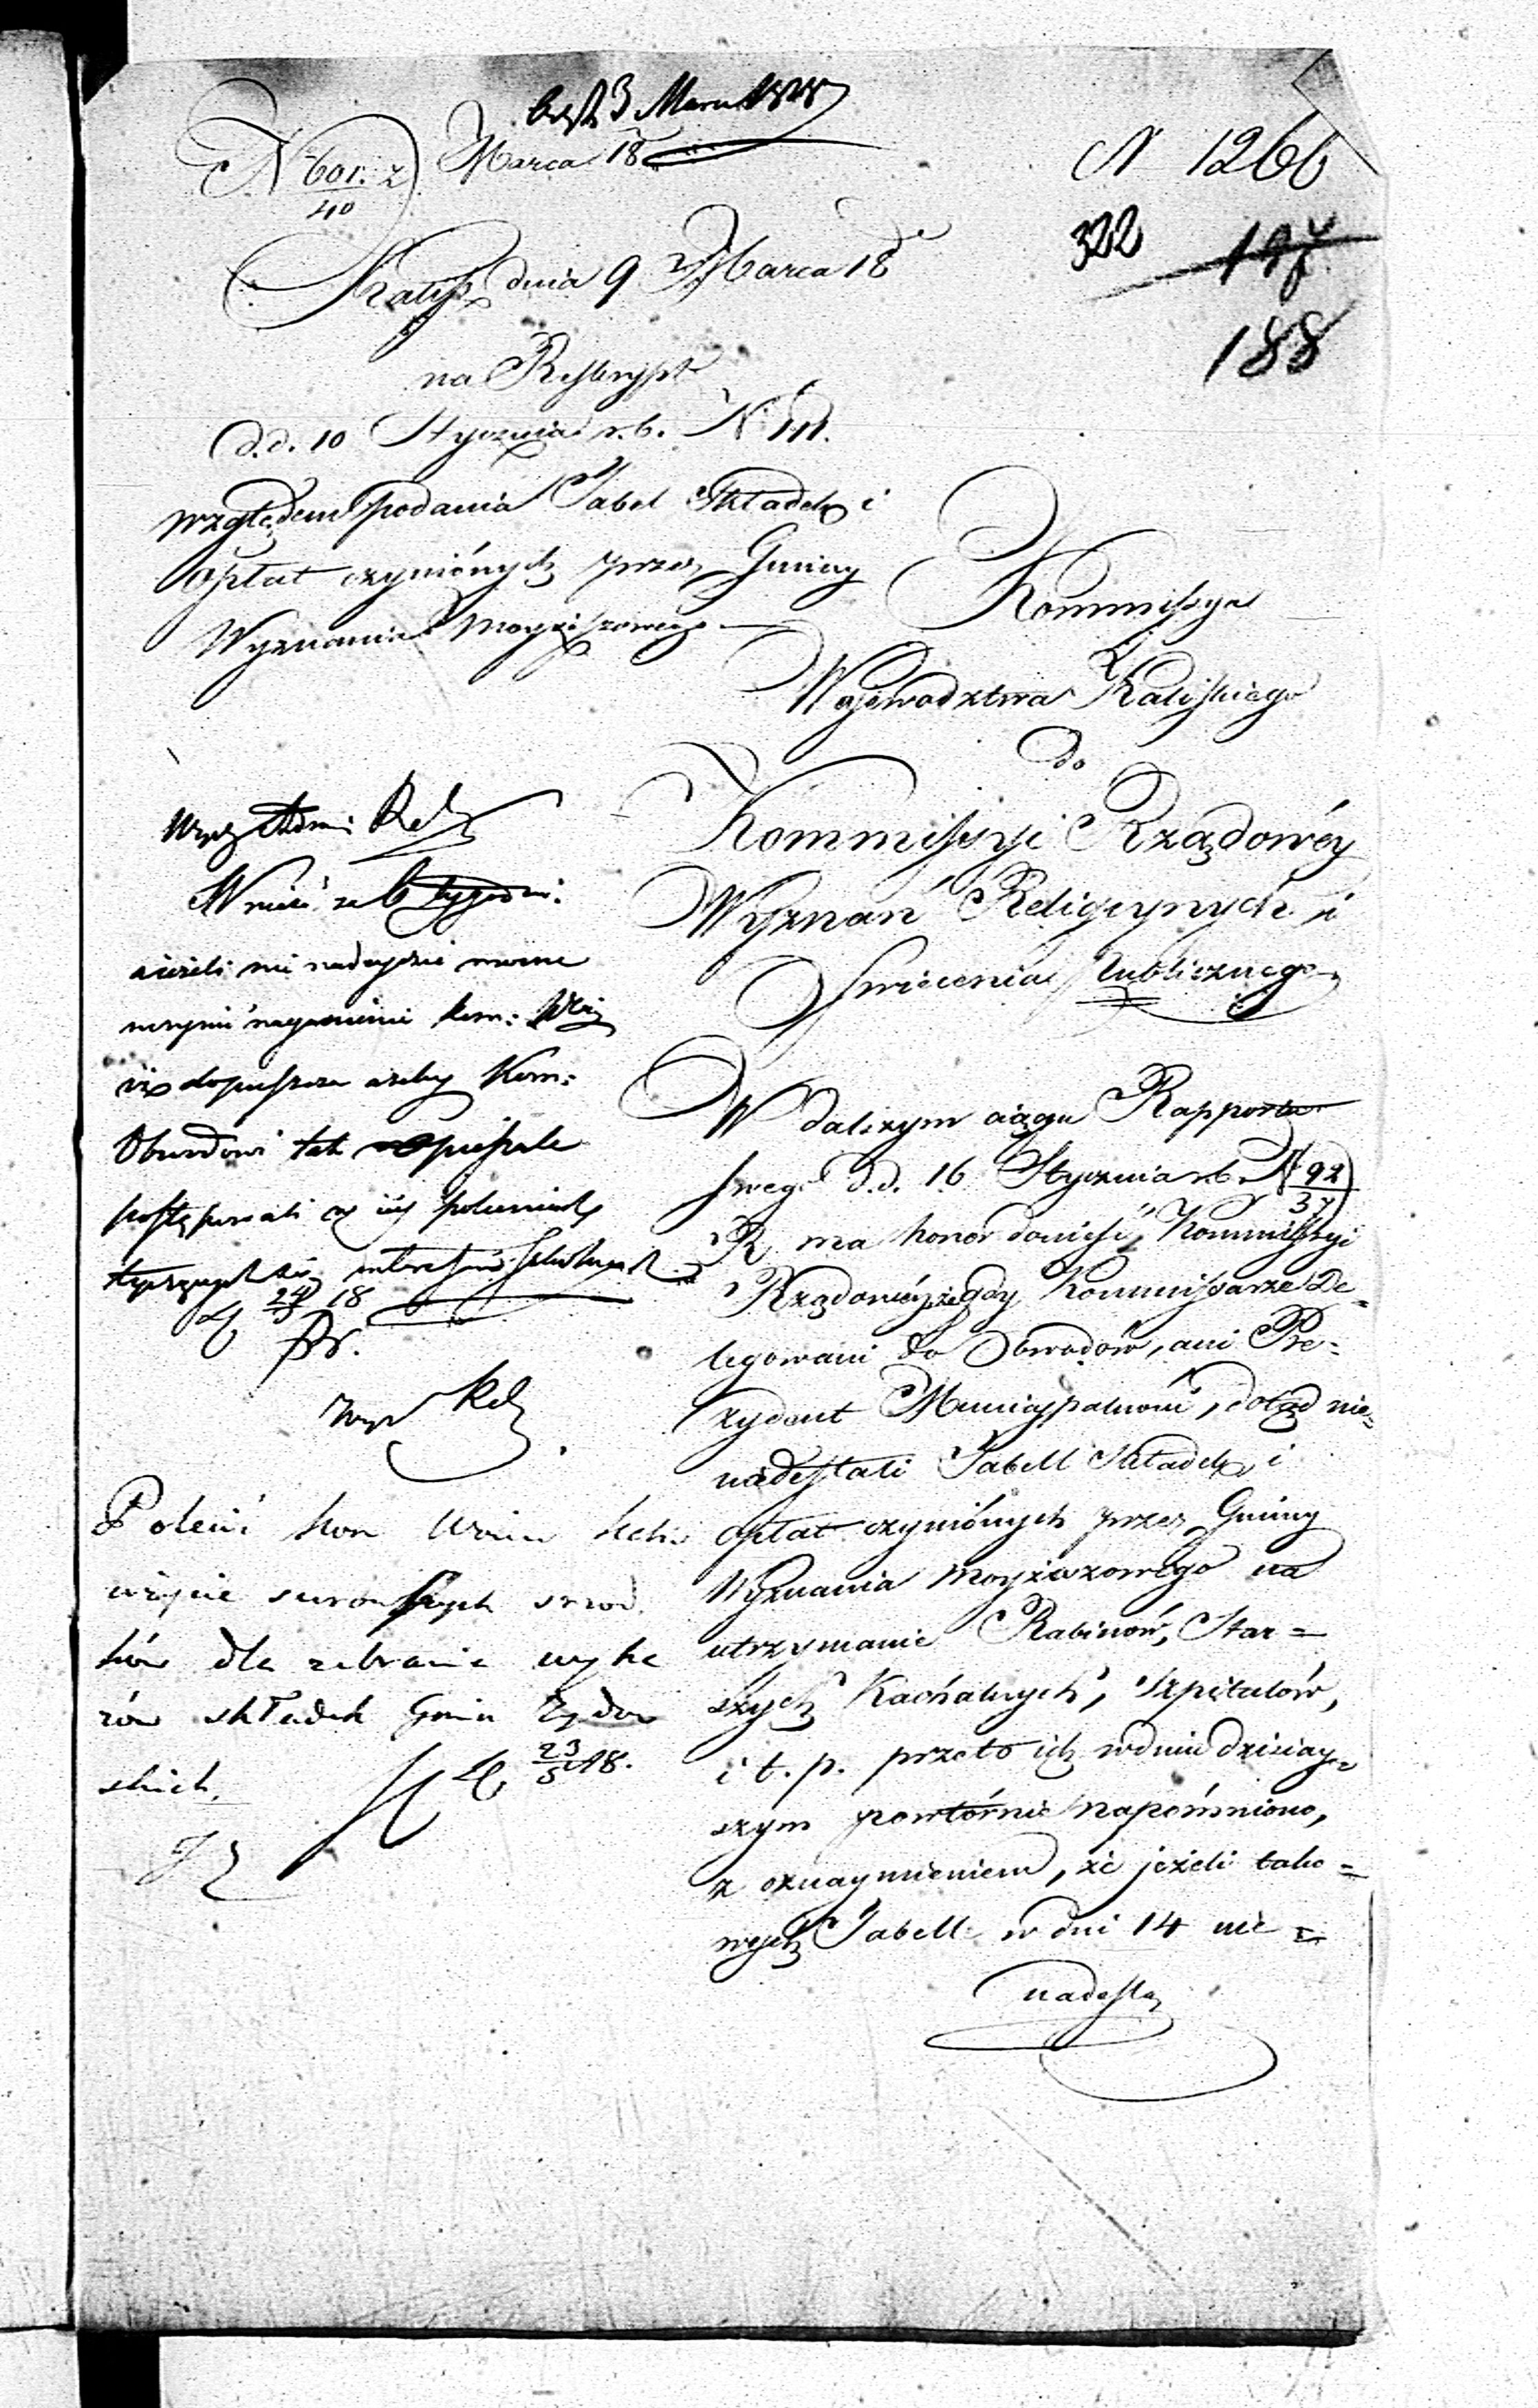 3 Marca 1818
N 601. z Marca 18
40
N 1266
322
188
Kalisz dnia 9 Marca 18
na Reskrypt
d.d. 10 Stycznia r.b. N 111.
względem podania Tabel Składek i
opłat czynionych przez Gminy
Wyznania Moyżeszowego
Kommissya
Wojewodztwa Kaliskiego
do
Kommissyi Rządowéy
Wyznań Religiynych i
Swiecenia Publicznego
W dalszym ciągu Rapportu
swego d.d. 16 Stycznia r.b. N 92
37
R. ma honor donieść Kommissyi
Rządowéy, że gdy Kommissarze De=
legowani do Obwodów, ani Pre=
zydent Municypalności, dotąd nie=
nadesłali Tabell Składek i
opłat czynionych przez Gminy
Wyznania Moyżeszowego na
utrzymanie Rabinów, Star=
szych Kachalnych, Szpitalów,
i t. p. przeto ich w dniu dzisiay=
szym powtórnie napomniono,
z oznaymieniem, że jeżeli tako=
wych Tabell w dni 14 nie=
nadeślą
Wnieść za 6 tygodni
a ieżeli nie nadeydzie
Kom:
dopuszcza ażeby Kom:
Obwodowi tak opieszale
postępowali
24 18
3
Polecić Kom
użycie surowszych srzod
ków dla zebrania wyka
zów składek Gmin Żydow
skich.
23 18.
3